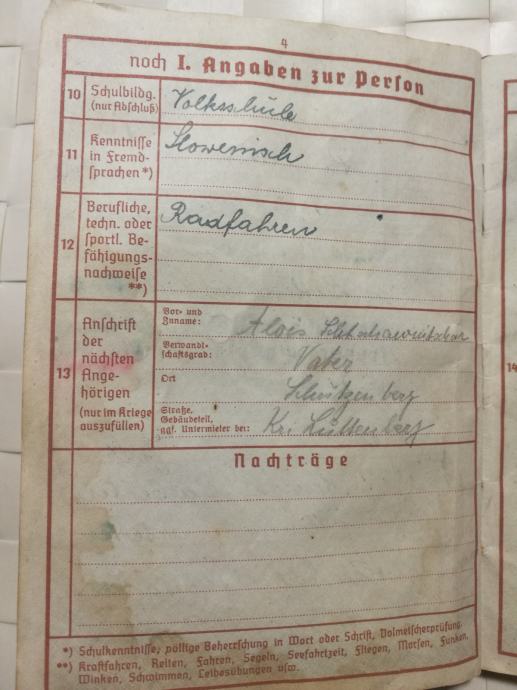 4
noch I. Angaben zur Person
10 Schulbildg. (nur Abschluß) Volksschule
11 Kenntnisse in Fremdsprachen*) Slowenisch
12 Berufliche, techn. oder sportl. Befähigungsnachweise **) Radfahren
13 Anschrift der nächsten Angehörigen (nur im Kriege auszufüllen)
Vor- und Zuname: Alois
Verwandtschaftsgrad: Vater
Ort Schützenberg
Straße, Gebäudeteil, ggf. Untermieter bei: Kr. Luttenberg
Nachträge
*) Schulkenntnisse, völlige Beherrschung in Wort oder Schrift, Dolmetscherprüfung.
**) Kraftfahren, Reiten, Fahren, Segeln, Seefahrtzeit, Fliegen, Morsen, Funken,
Winken, Schwimmen, Leibesübungen usw.
14